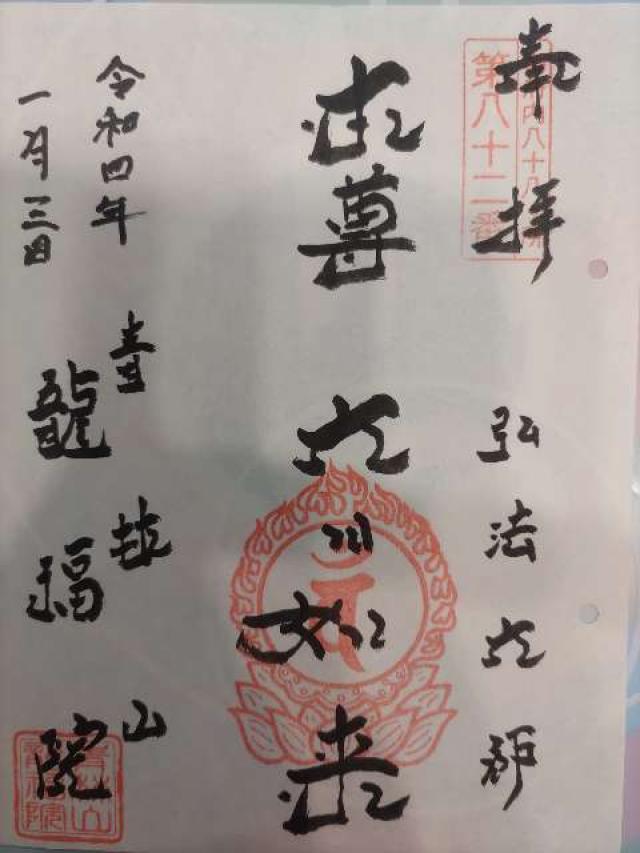 奉拝
第八十二番
弘法大師
本尊 大日如来
令和四年
一月三日
青林山
龍福院